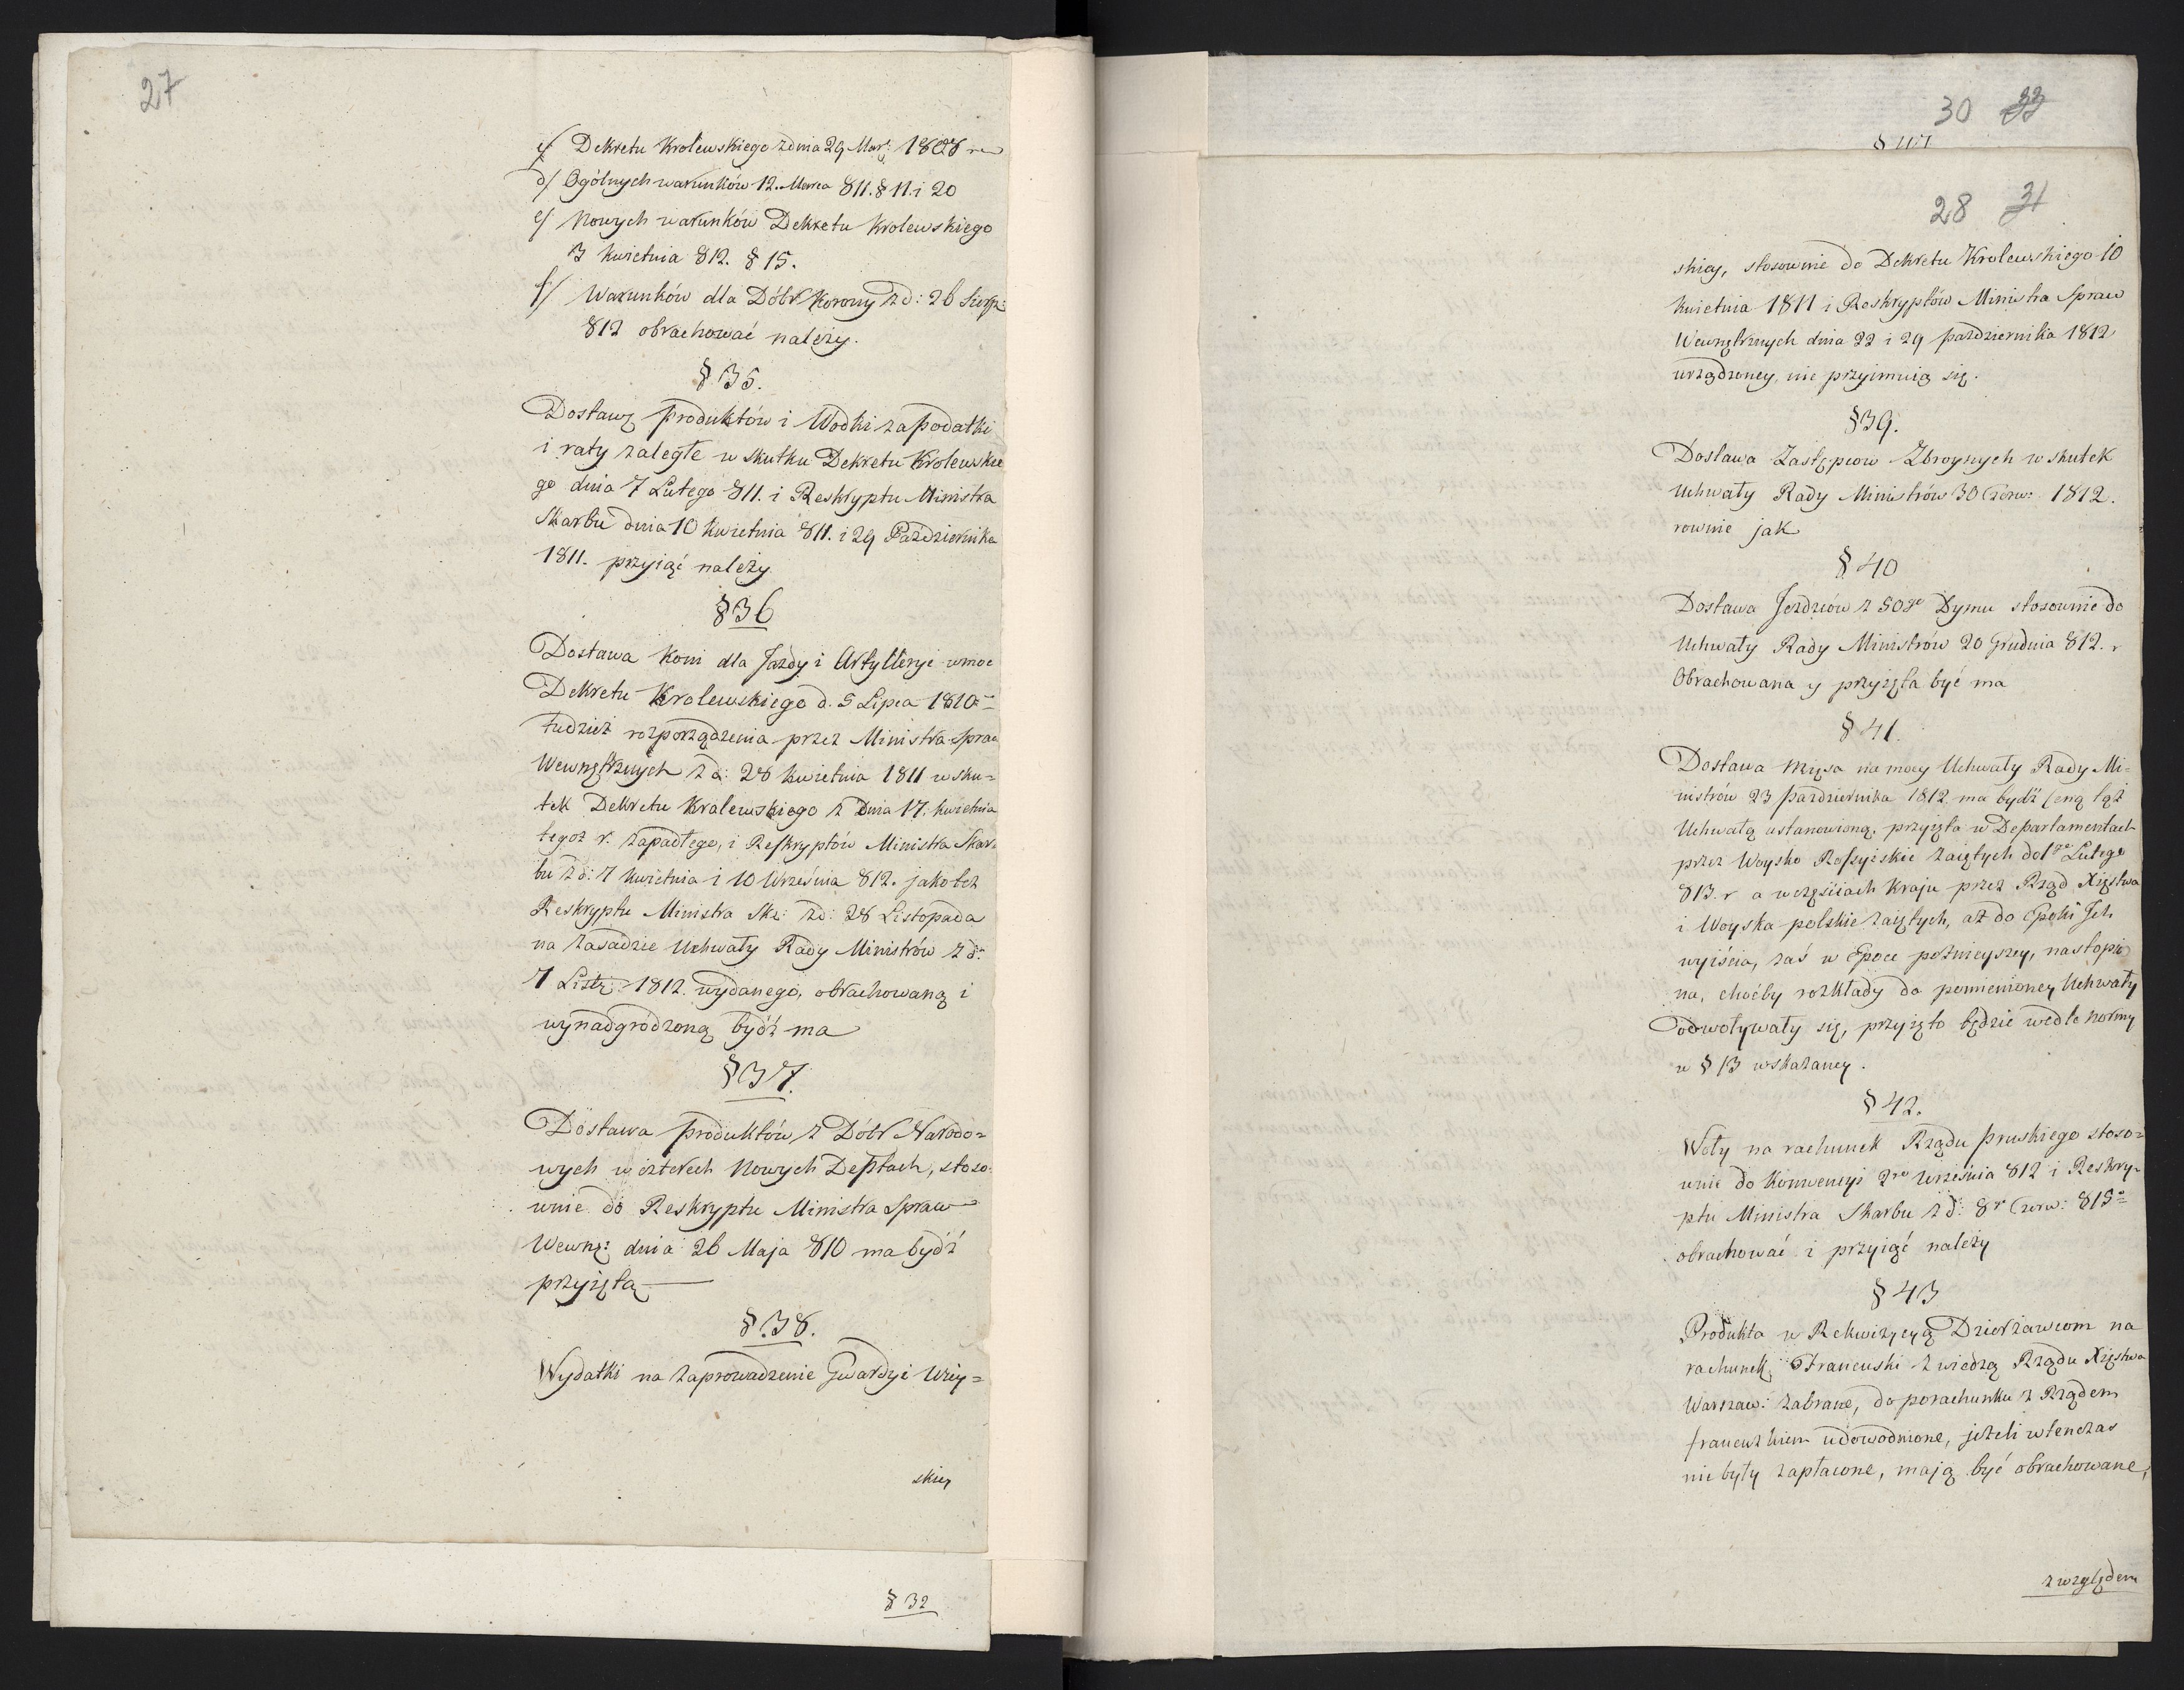 27
c/ Dekretu Krolewskiego z dnia 29 Mar: 1808
d/ Ogólnych warunków 12. Marca 811. § 11. i 20
e/ Nowych warunków Dekretu Krolewskiego
3 kwietnia 812. § 15.
f/ Warunków dla Dóbr Korony z d: 26 Sierp:
812 obrachować należy.
§ 35.
Dostawę produktów i Wodki za podatki
i raty zaległe w skutku Dekretu Krolewskie
go dnia 7 Lutego 811. i Reskryptu Ministra
Skarbu dnia 10 Kwietnia 811. i 29 Października
1811. przyiąć należy
§ 36
Dostawa Koni dla Jazdy i Artylleryi w moc
Dekretu Krolewskiego d. 5 Lipca 1810
tudzież rozporządzenia przez Ministra Spraw
Wewnętrznych z d: 28 kwietnia 1811 w sku=
tek Dekretu Kralewskiego z Dnia 17. kwietnia
tegoż r. zapadłego, i Reskryptów Ministra Skar=
bu z d: 7 kwietnia i 10 Września 812. jakoteż
Reskryptu Ministra Ska: z d: 28 Listopada
na zasadzie Uchwały Rady Ministrów z d:
7 List: 1812. wydanego, obrachowaną i
wynadgrodzoną bydź ma
§ 37.
Dostawa produktów z Dóbr Narodo=
wych w czterech Nowych Deptach, stoso=
wnie do Reskryptu Ministra Spraw
Wewnę: dnia 26 Maja 810 ma bydź
przyiętą
§ 38.
Wydatki na zaprowadzenie Gwardyi Wiey=
skiey
§ 32
30 33
28 31
skiey, stosownie do Dekretu Krolewskiego 10
kwietnia 1811 i Reskryptów Ministra Spraw
Wewnętrznych dnia 22 i 29 października 1812
urządzoney, nie przyimuią się.
§ 39.
Dostawa Zastępcow Zbroynych w skutek
Uchwały Rady Ministrów 30 Czerw: 1812.
rownie jak
§ 40
Dostawa Jezdzców z 50go Dymu stosownie do
Uchwały Rady Ministrów 20 Grudnia 812. r
Obrachowana y przyięta być ma
§ 41.
Dostawa Mięsa na mocy Uchwały Rady Mi=
nistrów 23 października 1812 ma bydź Ceną tąż
Uchwałą ustanowioną, przyięta w Departamentach
przez Woysko Rossyiskie zaiętych do 1go Lutego
813. r a w częściach kraju przez Rząd Xięstwa
i Woyska polskie zaiętych, aż do Epoki Jch
wyiścia, zaś w Epoce poźnieyszey, nastopio
na, choćby rozkłady do pomenioney Uchwały
odwoływały się, przyięto będzie wedle normy
w § 13 wskazaney.
§ 42.
Woły na rachunek Rządu pruskiego stoso=
wnie do Konwencyi 2go Września 812 i Reskry=
ptu Ministra Skarbu z d: 8 Czerw: 815
obrachować i przyiąć należy
§ 43
Produkta w Rekwizycyą Dzierżawcom na
rachunek Francuski z wiedzą Rządu Xięstwa
Warszaw: zabrane, do porachunku z Rządem
francuzkiem udowodnione, jeżeli wtenczas
nie były zapłacone, mają być obrachowane,
z względem